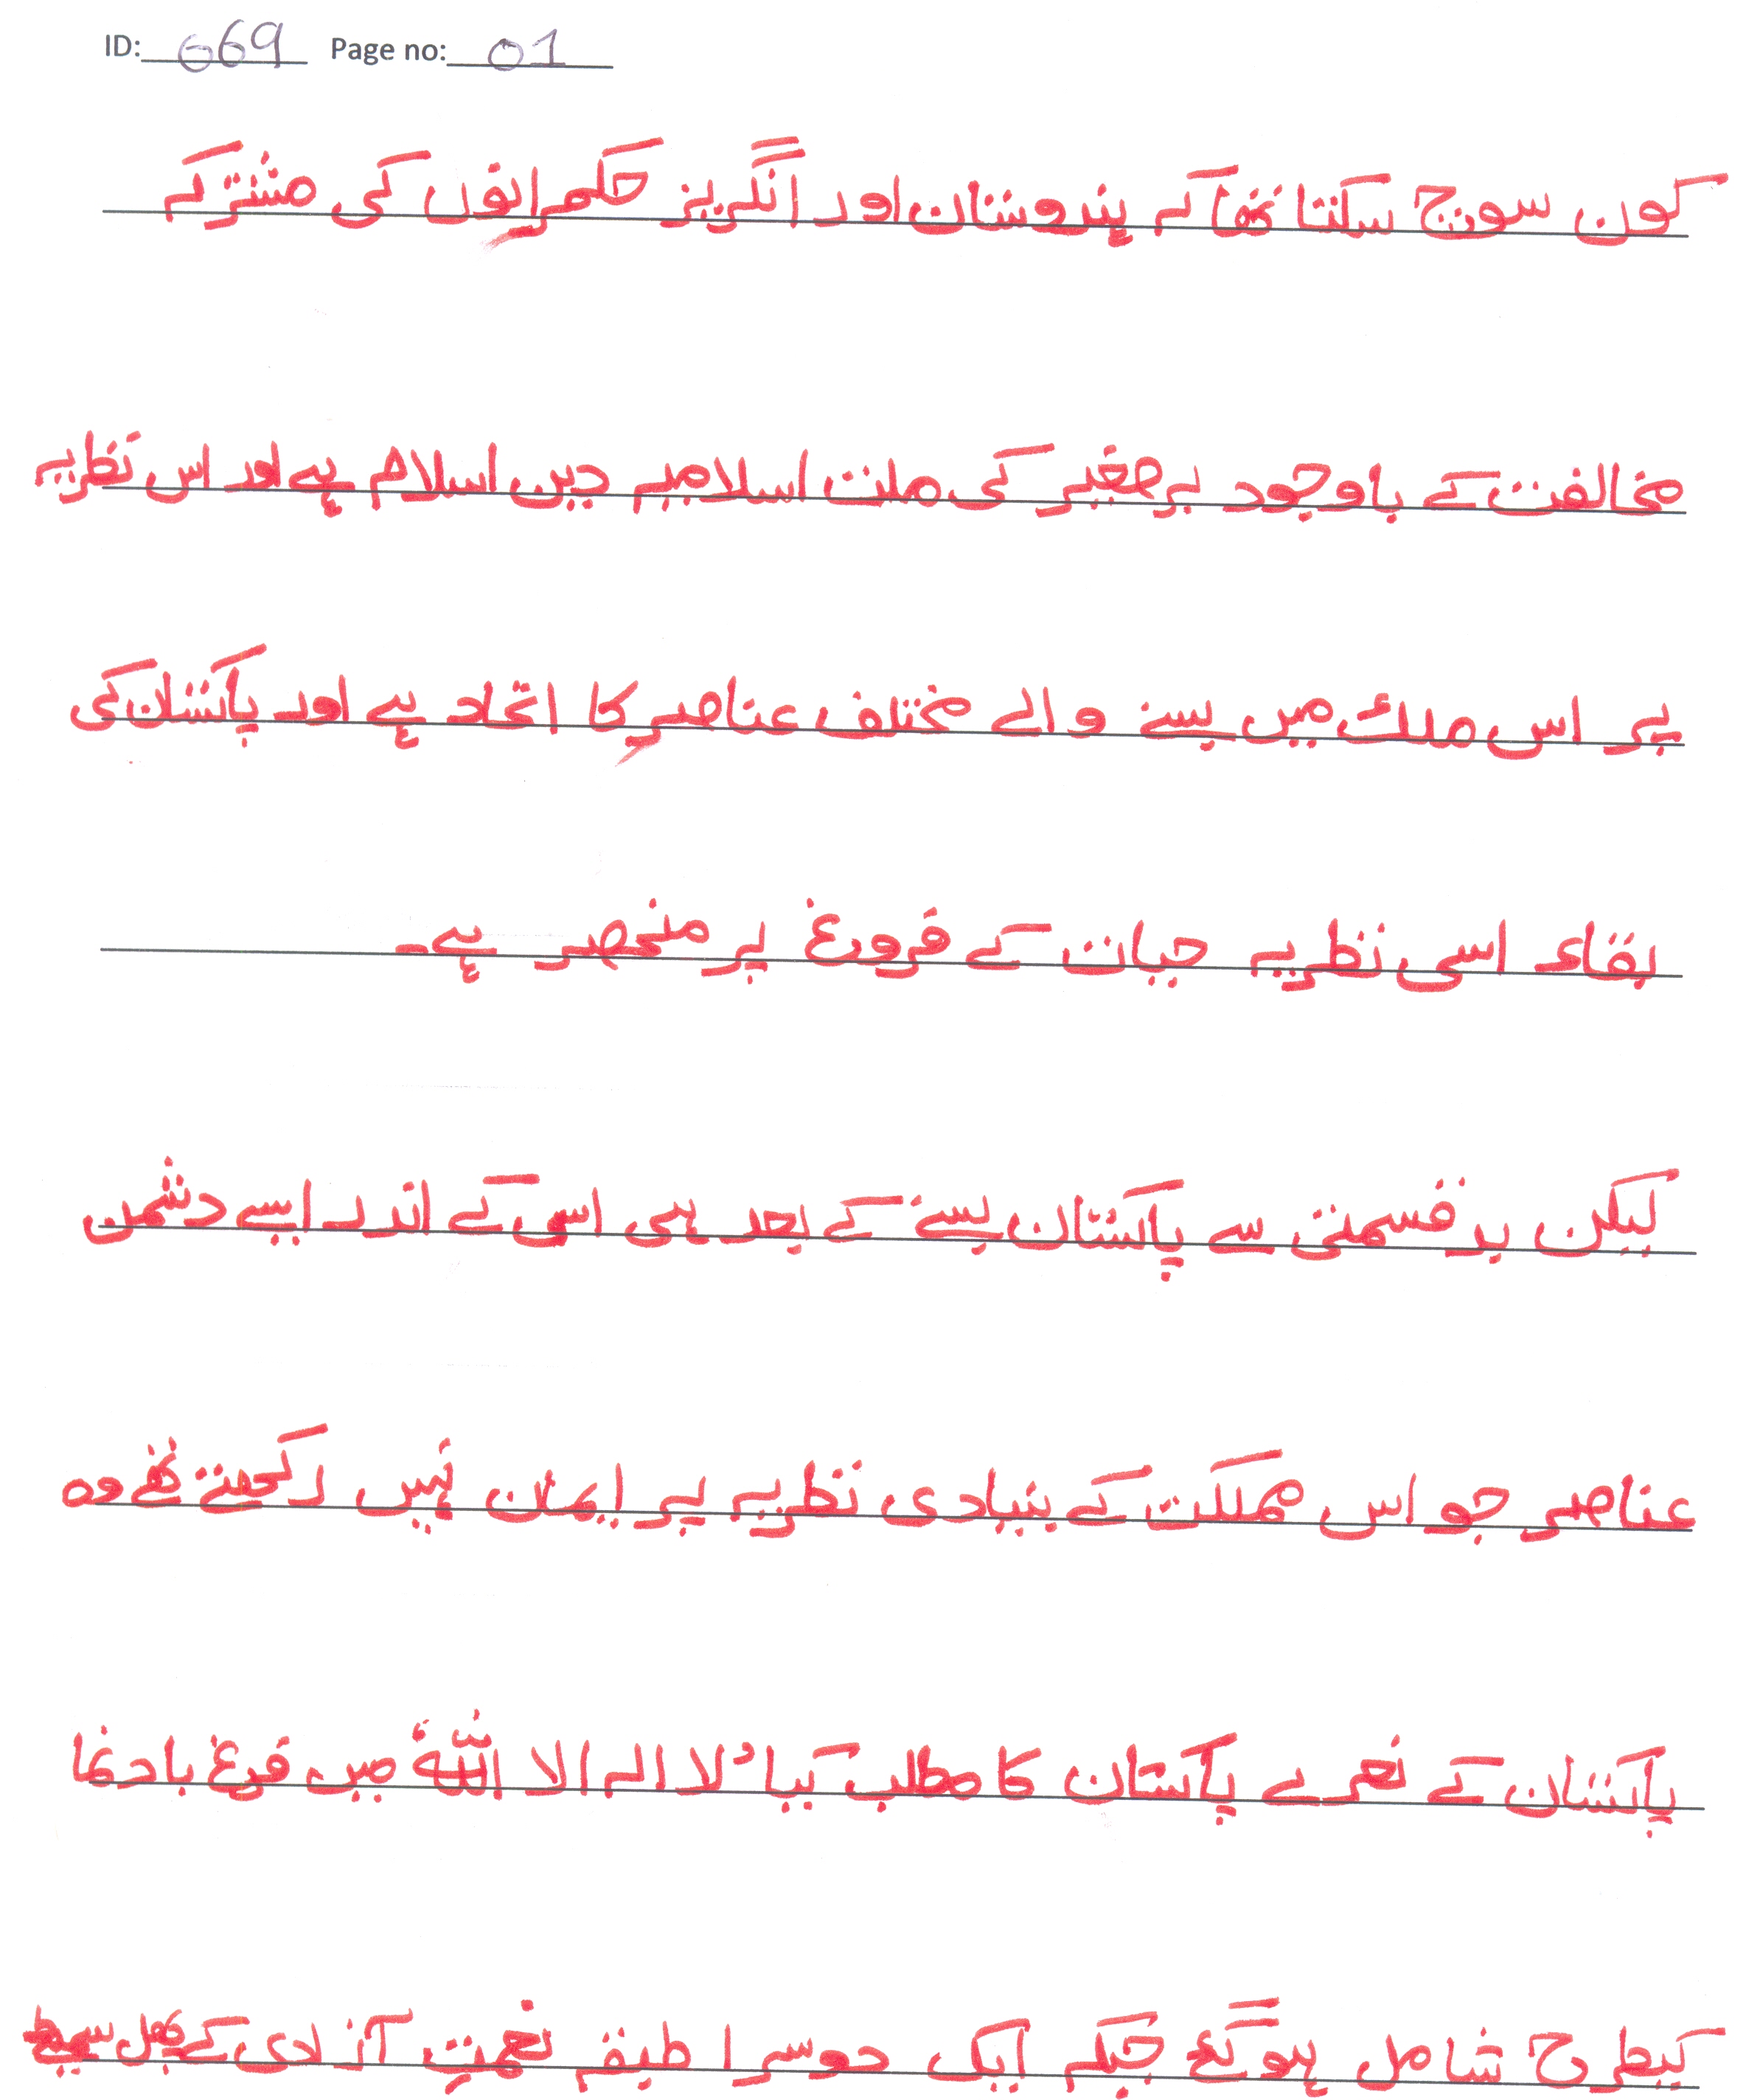 ID: 669 Page no: 01
کون سوچ سکتا تھا کہ ہندوستان اور انگریز حکمرانوں کی مشترکہ
مخالفت کے باوجود برصغیر کی ملت اسلامیہ دین اسلام ہے اور اس نظریہ
پر اس ملک میں بسنے والے مختلف عناصر کا اتحاد ہے اور پاکستان کی
بقاء اسی نظریہ حیات کے فروغ پر منحصر ہے۔
لیکن بدقسمتی سے پاکستان بسنے کے بعد ہی اسی کے اندر ایسے دشمن
عناصر جو اس مملکت کے بنیادی نظریہ پر ایمان نہیں رکھتے تھے وہ
پاکستان کے نعرے پاکستان کا مطلب کیا لا الہ الا اللہ میں فرغ باد نما
کیطرح شامل ہو گئے جبکہ ایک دوسرا طبقہ نعمت آزادی کے پھل